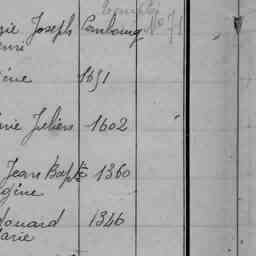 Joseph Cambourg No 71
ène 1691
rie Juliers 1602
Jean Bapte 1360
gène
douard 1346
arie